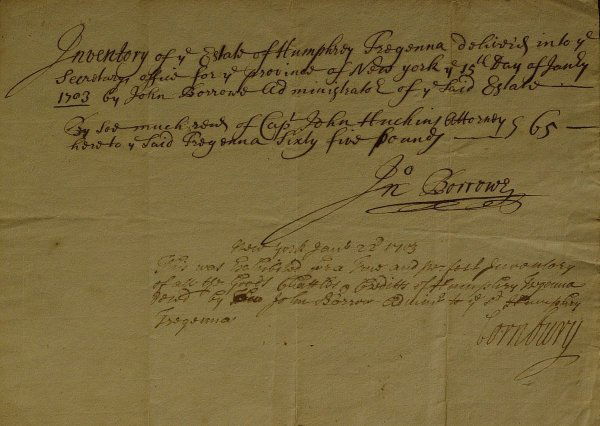 Inventory of ye Estate of Humphrey Tregenna deliverd into ye
Secretarys office for ye Province of New york ye 15th Day of Janry
1703 by John Borrowe Administrator of ye Said Estate
By soe much recd of Capt John Huchins Attorney
here to ye Said Tregenna Sixty five pounds 65
Jno Borrowe
New York Janr 22d 1703
This was Exhibited for a True and perfect Inventory
of all the Goods Chattles & Creditts of Humphry Tregenna
by John Borrow Adminr to ye sd Humphry
Tregenna
Cornbury